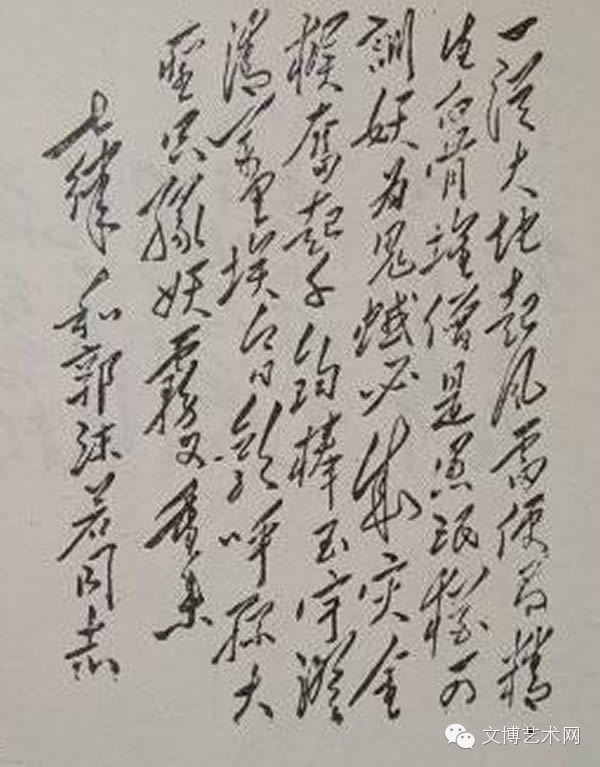 一從大地起风雷便有精
生白骨堆僧是愚氓猶可
訓妖为鬼蜮必成灾金
猴奮起千鈞棒玉宇澄
清萬里埃今日歡呼孫大
聖只緣妖霧又重来
七律 和郭沫若同志
文博艺术网